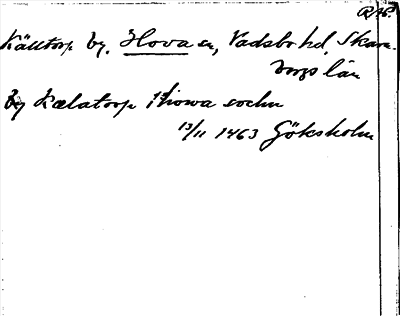 RAP.
Källtorp by, Hova sn, Vadsbo hd, Skara-
borgs län
By Kælatorp Hiowa sochn
13/11 1463 Göksholm